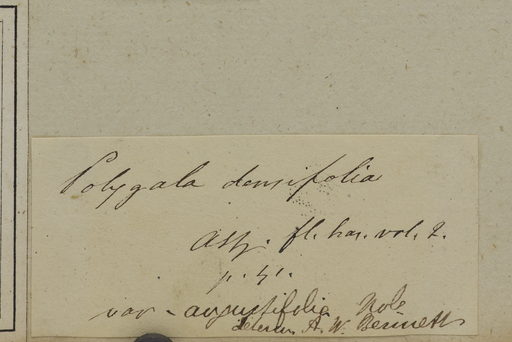 Polygala densifolia
fl. bras. vol. 2.
var - angustifolia
determ. A. W. Bennett